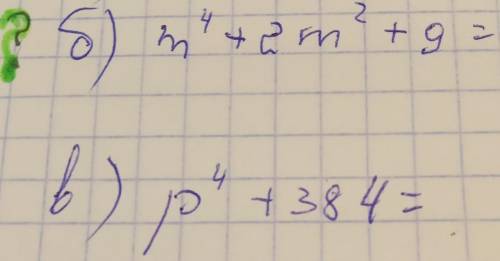 ? б) m⁴ + 2m² + 9 =
в) p⁴ + 384 =